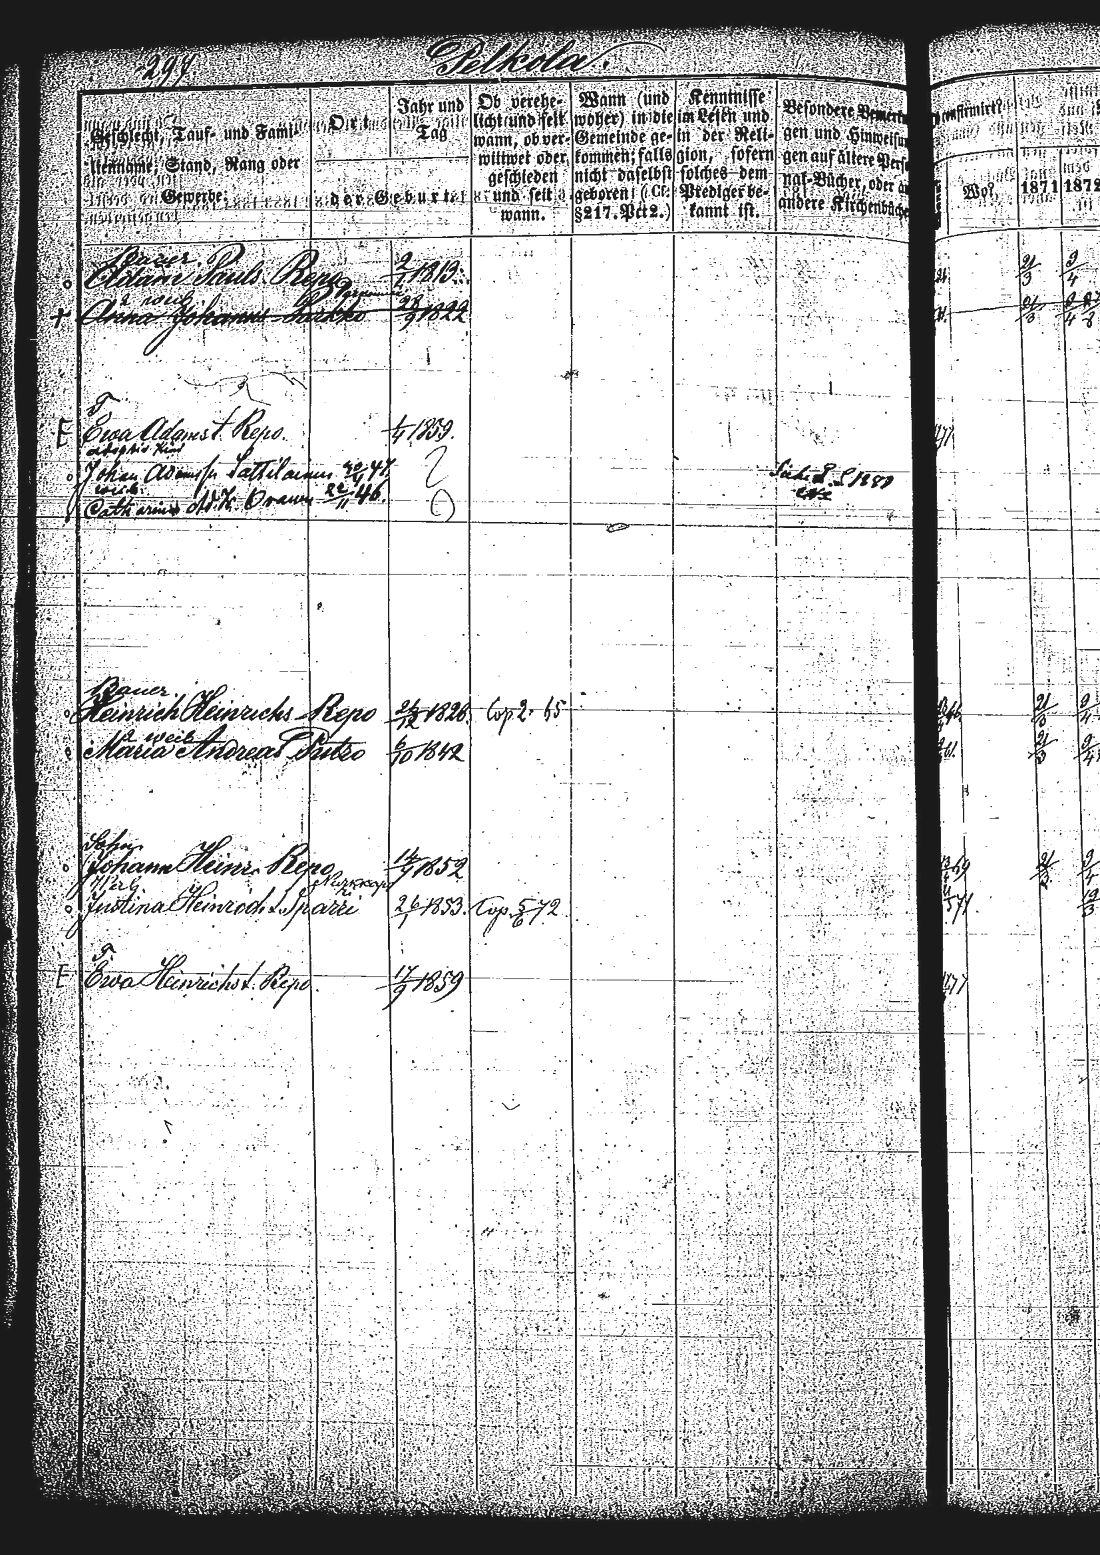 297
Pelkola.
Geschlecht, Tauf- und Fami-
lienname, Stand, Rang oder
Gewerbe.
Ort
Jahr und
Tag
der Geburt
Ob verehe-
licht und seit
wann, ob ver-
wittwet oder
geschieden
und seit
wann.
Wann (und
woher) in die
Gemeinde ge-
kommen; falls
nicht daselbst
geboren! (Cf.
§217. Pct 2.)
Kenntnisse
im Lesen und
in der Reli-
gion, sofern
solches dem
Prediger be-
kannt ist.
Besondere Bemerku
gen und Hinweisun
gen auf ältere Perso
nal-Bücher, oder au
andere Kirchenbüche
onfirmirt?
Wo?
1871
1872
Bauer.
Adam Pauls. Repo 2/4 1813.
21/3 9/4
2 weib
Anna Johannis 28/9 1822
21/3
T
E Ewa Adams t. Repo. 1/4 1859.
adoptiv Kind
Johan Adams 47
weib.
Catharina 22/11 46.
1880
Bauer.
Heinrich Heinrichs Repo 1826. Cop. 2. 65
21/3 9/4
2 weib
Maria Andreas Putro 6/10 1842
21/3 9/4
Sohn
Johann Heinr. Repo 14/9 1852
69 21/3 9/4
Weib
Justina Heinrich t. Sparri 26/7 1853. Cop. 5/6 72
T
E Ewa Heinrichs t. Repo. 17/9 1859